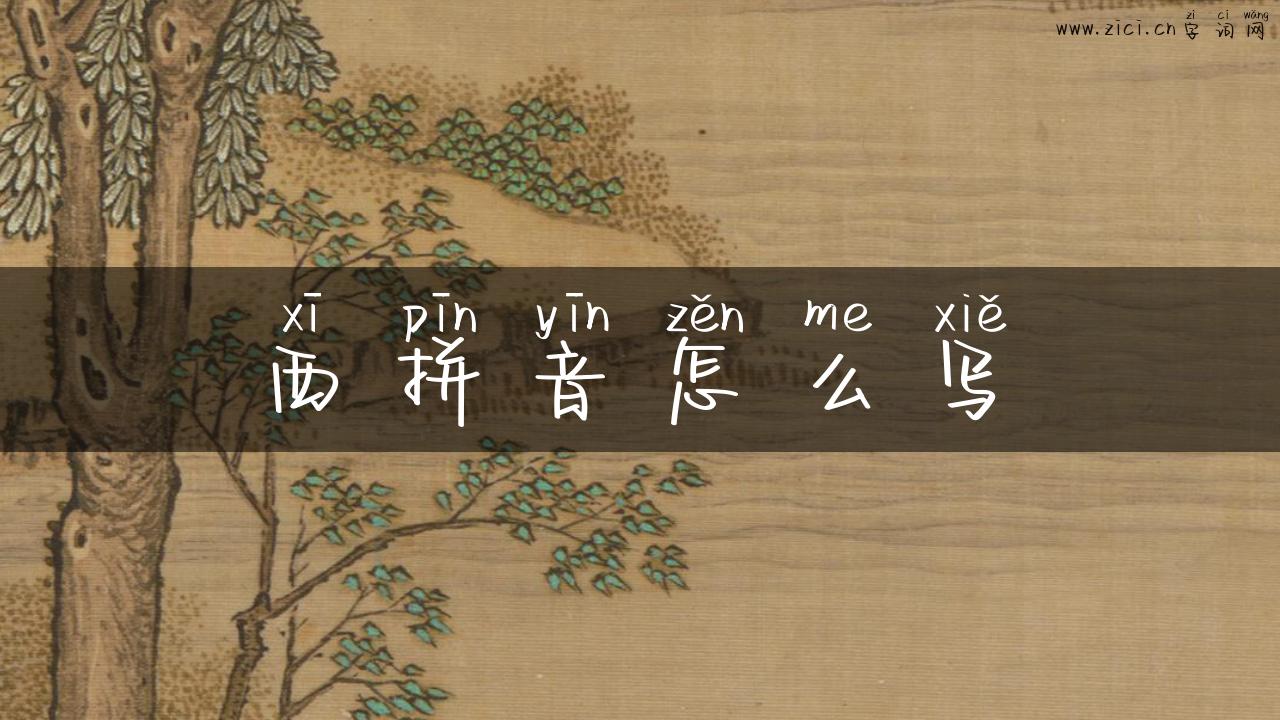 zì cí wǎng
www.zici.cn 字词网
xī pīn yīn zěn me xiě
西拼音怎么写